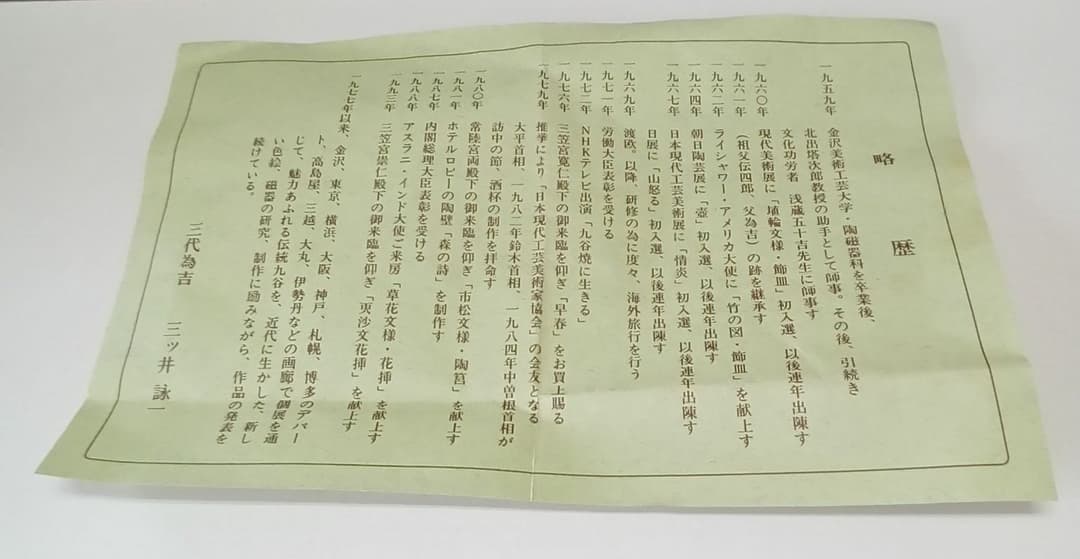 略歴
一九五九年 金沢美術工芸大学・陶磁器科を卒業後、
北出塔次郎教授の助手として師事。その後、引続き
文化功労者 浅蔵五十吉先生に師事す
一九六〇年 現代美術展に「埴輪文様・飾皿」初入選、以後連年出陳す
一九六一年 (祖父伝四郎、父為吉)の跡を継承す
一九六二年 ライシャワー・アメリカ大使に「竹の図・飾皿」を献上す
一九六四年 朝日陶芸展に「壺」初入選、以後連年出陳す
一九六七年 日本現代工芸美術展に「情炎」初入選、以後連年出陳す
日展に「山怒る」初入選、以後連年出陳す
一九六九年 渡欧。以降、研修の為に度々、海外旅行を行う
一九七一年 労働大臣表彰を受ける
一九七二年 NHKテレビ出演「九谷焼に生きる」
一九七六年 三笠宮寛仁殿下の御来臨を仰ぎ「早春」をお買上賜る
一九七九年 推挙により「日本現代工芸美術家協会」の会友となる
大平首相、一九八二年鈴木首相、一九八四年中曽根首相が
訪中の節、酒杯の制作を拝命す
一九八〇年 常陸宮両殿下の御来臨を仰ぎ「市松文様・陶筥」を献上す
一九八一年 ホテルロビーの陶壁「森の詩」を制作す
一九八七年 内閣総理大臣表彰を受ける
一九八八年 アスラニ・インド大使ご来房「草花文様・花挿」を献上す
一九九三年 三笠宮崇仁殿下の御来臨を仰ぎ「更沙文花挿」を献上す
一九七七年以来、金沢、東京、横浜、大阪、神戸、札幌、博多のデパー
ト、高島屋、三越、大丸、伊勢丹などの画廊で個展を通
じて、魅力あふれる伝統九谷を、近代に生かした、新し
い色絵、磁器の研究、制作に励みながら、作品の発表を
続けている。
三代為吉 三ッ井詠一